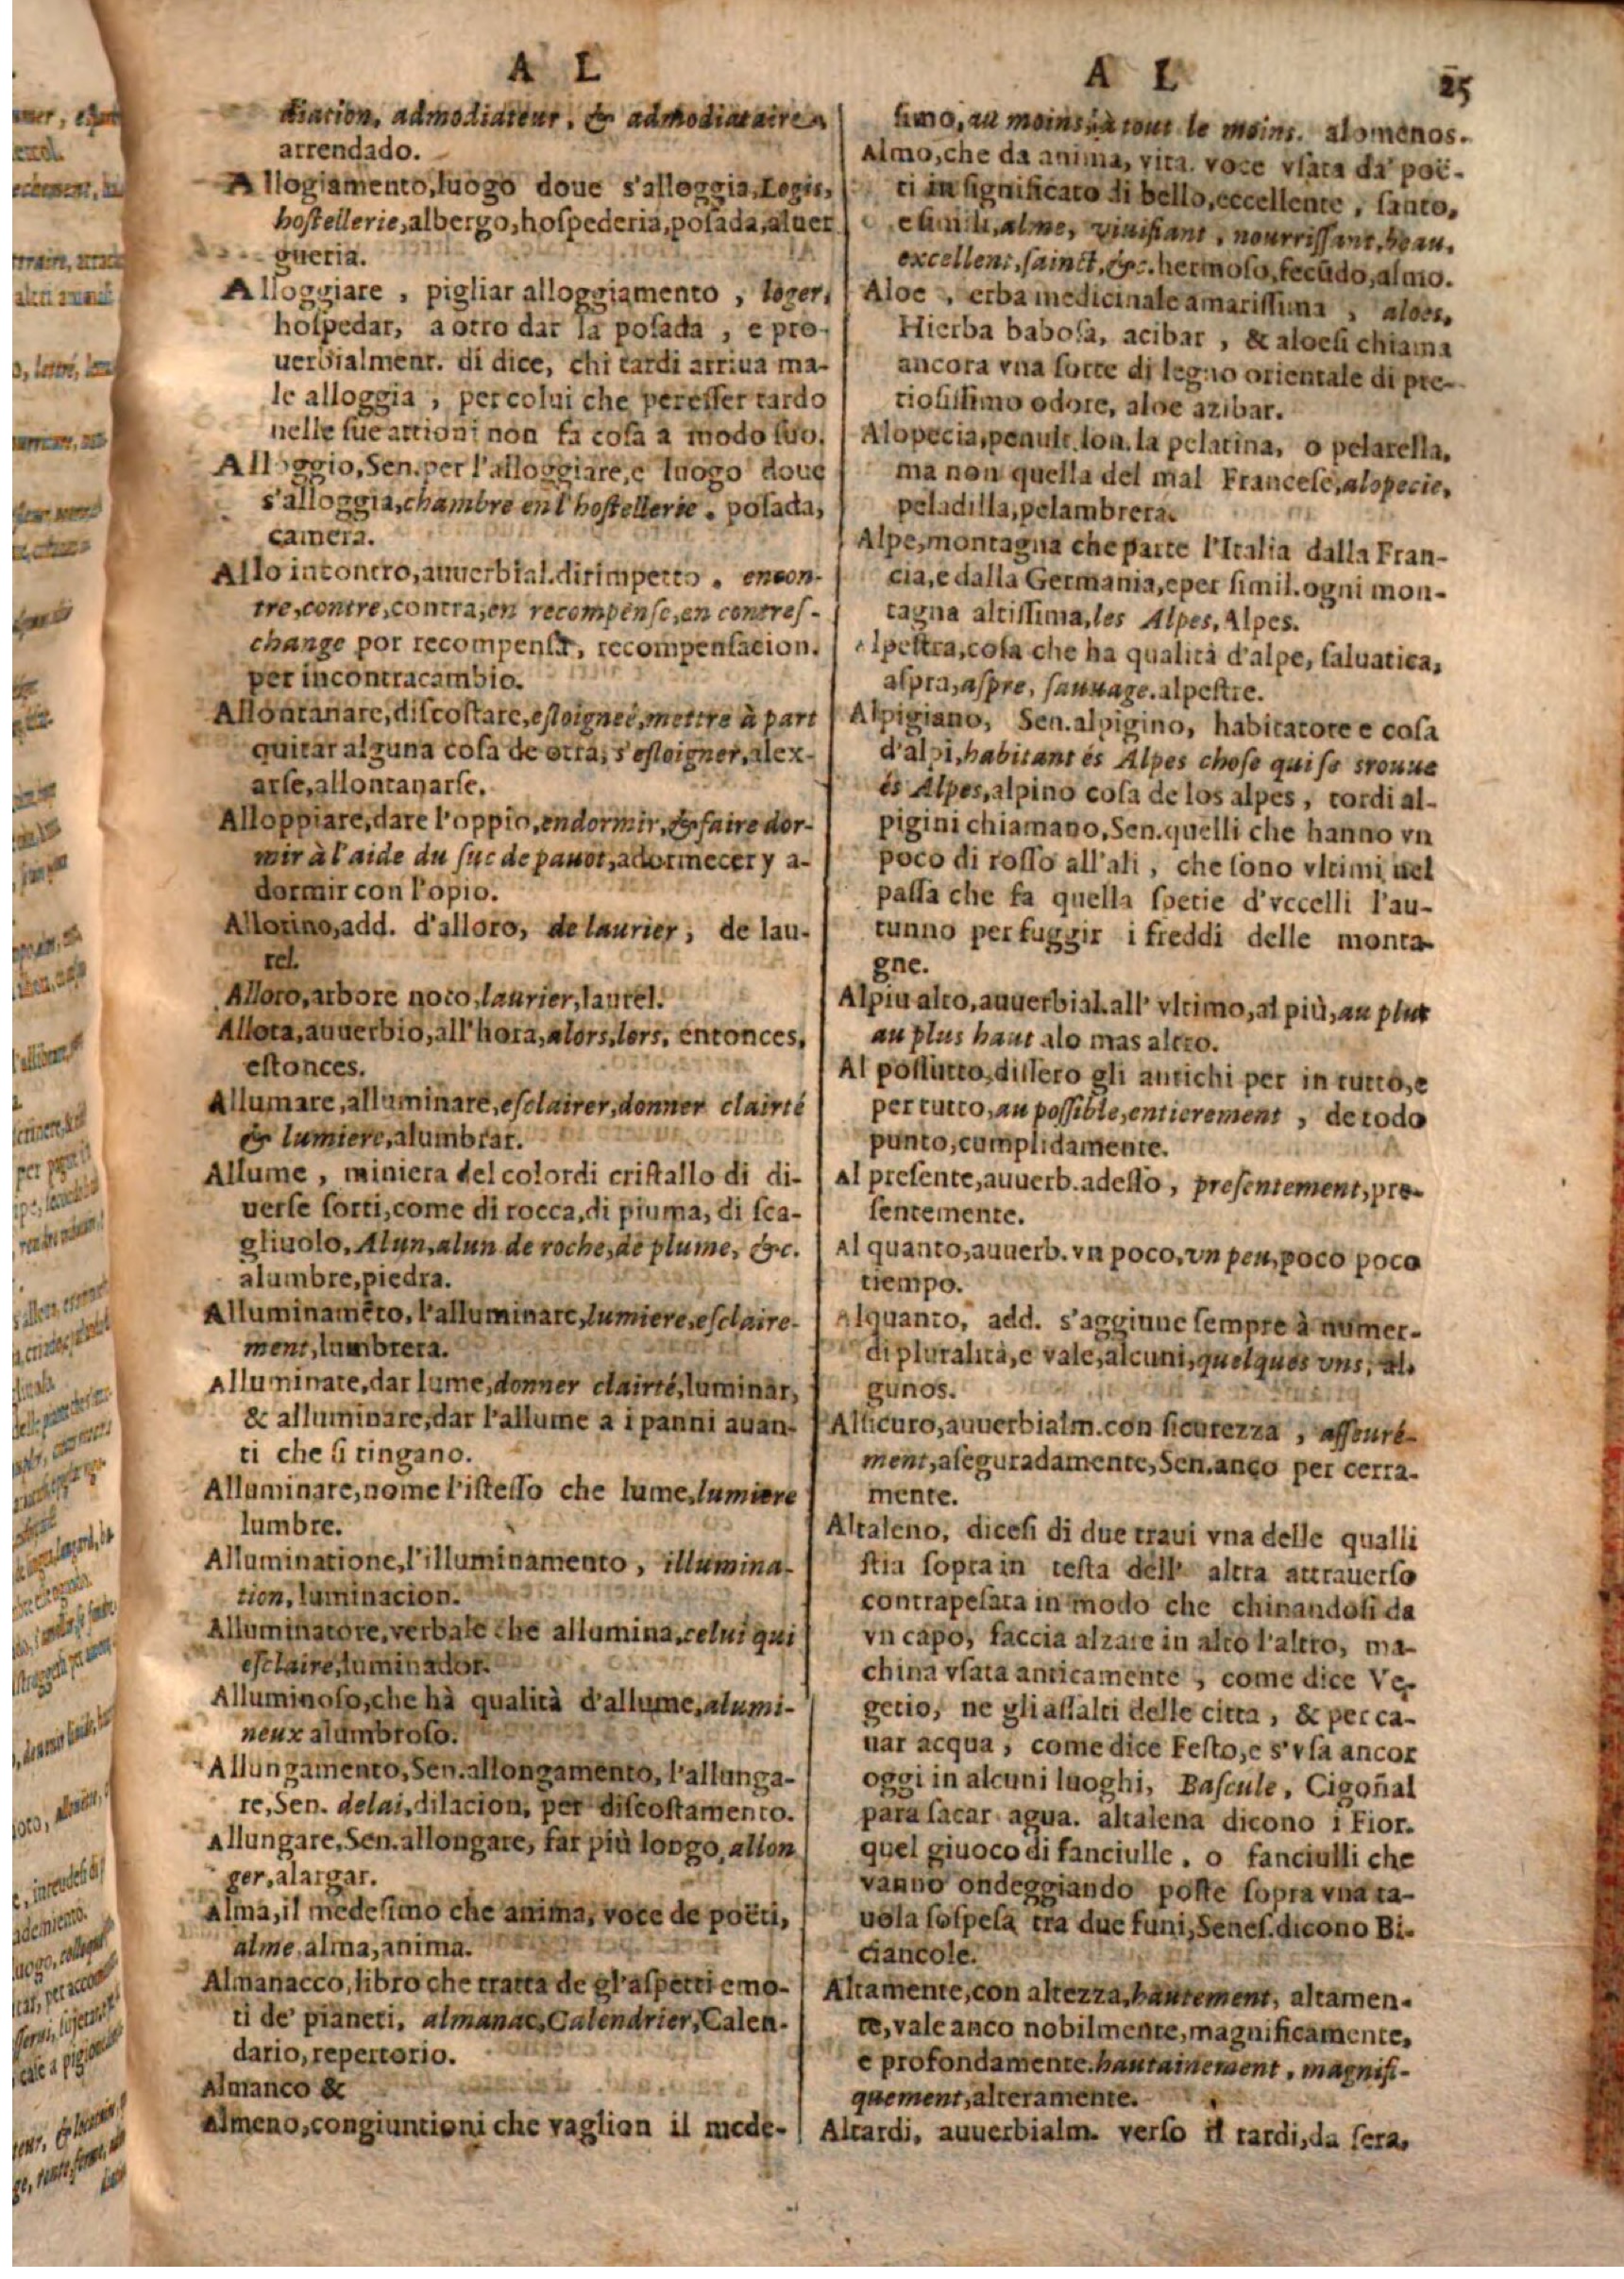 A L
diation, admodiateur, & admodiataire
arrendado.
Allogiamento,luogo doue s'alloggia,Logis,
hoſtellerie,albergo,hoſpederia,poſada,aluer
gueria.
Alloggiare , pigliar alloggiamento , loger,
hoſpedar, a otro dar la poſada , e pro-
uerbialment. di dice, chi tardi arriua ma-
le alloggia , per colui che pereſſer tardo
nelle ſue attioni non fa coſa a modo ſuo.
Alloggio,Sen.per l'alloggiare,e luogo doue
s'alloggia,chambre en l'hoſtellerie . poſada,
camera.
Allo incontro,auuerbial.dirimpetto . encon-
tre,contre,contra,en recompenſe,en contreſ-
change por recompenſa, recompenſacion.
per incontracambio.
Allontanare,diſcoſtare,eſloigneé,mettre à part
quitar alguna coſa de otra, s'eſloigner,alex-
arſe,allontanarſe.
Alloppiare,dare l'oppio,endormir,& faire dor-
mir à l'aide du ſuc de pauot,adormecer y a-
dormir con l'opio.
Allorino,add. d'alloro, de laurier , de lau-
rel.
Alloro,arbore noto,laurier,laurel.
Allora,auuerbio,all'hora,alors,lors, entonces,
eſtonces.
Allumare,alluminare,eſclairer,donner clairté
& lumiere,alumbrar.
Allume , miniera del colordi criſtallo di di-
uerſe ſorti,come di rocca,di piuma, di ſca-
gliuolo, Alun,alun de roche,de plume, &c.
alumbre,piedra.
Alluminamēto, l'alluminare,lumiere,eſclaire-
ment,lumbrera.
Alluminate,dar lume,donner clairté,luminar,
& alluminare,dar l'allume a i panni auan-
ti che ſi tingano.
Alluminare,nome l'iſteſſo che lume,lumiere
lumbre.
Alluminatione,l'illuminamento , illumina-
tion, luminacion.
Alluminatore,verbale che allumina,celui qui
eſclaire,luminador.
Alluminoſo,che hà qualità d'allume,alumi-
neux alumbroſo.
Allungamento,Sen.allongamento, l'allunga-
re,Sen. delai,dilacion, per diſcoſtamento.
Allungare,Sen.allongare, far più longo,allon
ger,alargar.
Alma,il medeſimo che anima, voce de poëti,
alme,alma,anima.
Almanacco,libro che tratta de gl'aſpetti e mo-
ti de' pianeti, almanac,Calendrier,Calen-
dario,repertorio.
Almanco &
Almeno,congiuntioni che vaglion il mede-
A L 25
ſimo,au moins,à tout le moins. alomenos.
Almo,che da anima, vita. voce vſata da poë-
ti in ſignificato di bello,eccellente , ſanto,
e ſimili,alme, viuifiant , nourriſſant,beau,
excellent,ſainct,&c.hermoſo,fecūdo,almo.
Aloe , erba medicinale amariſſima , aloes,
Hierba baboſa, acibar , & aloeſi chiama
ancora vna ſorte di legno orientale di pre-
tioſiſſimo odore, aloe azibar.
Alopecia,penult.lon.la pelatina, o pelarella,
ma non quella del mal Franceſe,alopecie,
peladilla,pelambrera.
Alpe,montagna che parte l'Italia dalla Fran-
cia,e dalla Germania,e per ſimil.ogni mon-
tagna altiſſima,les Alpes,Alpes.
Alpeſtra,coſa che ha qualità d'alpe, ſaluatica,
aſpra,aſpre, ſauuage.alpeſtre.
Alpigiano, Sen.alpigino, habitatore e coſa
d'alpi,habitant és Alpes choſe qui ſe trouue
és Alpes,alpino coſa de los alpes , tordi al-
pigini chiamano,Sen.quelli che hanno vn
poco di roſſo all'ali , che ſono vltimi nel
paſſa che fa quella ſpetie d'vccelli l'au-
tunno per fuggir i freddi delle monta-
gne.
Alpiu alto,auuerbial.all' vltimo,al più,au plus
au plus haut alo mas altro.
Al poſtutto,diſſero gli antichi per in tutto,e
per tutto,au poſſible,entierement , de todo
punto,cumplidamente.
Al preſente,auuerb.adeſſo , preſentement,pre-
ſentemente.
Al quanto,auuerb.vn poco,vn peu,poco poco
tiempo.
Alquanto, add. s'aggiunc ſempre à numer-
di pluralità,e vale,alcuni,quelques vns, al-
gunos.
Alſicuro,auuerbialm.con ſicurezza , aſſeuré-
ment,aſeguradamente,Sen.anco per certa-
mente.
Altaleno, diceſi di due traui vna delle qualli
ſtia ſopra in teſta dell' altra attrauerſo
contrapeſata in modo che chinandoſi da
vn capo, faccia alzare in alto l'altro, ma-
china vſata anticamente , come dice Ve-
getio, ne gli aſſalti delle citta , & per ca-
uar acqua , come dice Feſto,e s'vſa ancor
oggi in alcuni luoghi, Baſcule, Cigoñal
para ſacar agua. altalena dicono i Fior.
quel giuoco di fanciulle , o fanciulli che
vanno ondeggiando poſte ſopra vna ta-
uola ſoſpeſa tra due funi,Seneſ.dicono Bi-
ciancole.
Altamente,con altezza,hautement, altamen-
te,vale anco nobilmente,magnificamente,
e profondamente.hautainement , magnifi-
quement,alteramente.
Altardi, auuerbialm. verſo il tardi,da ſera,